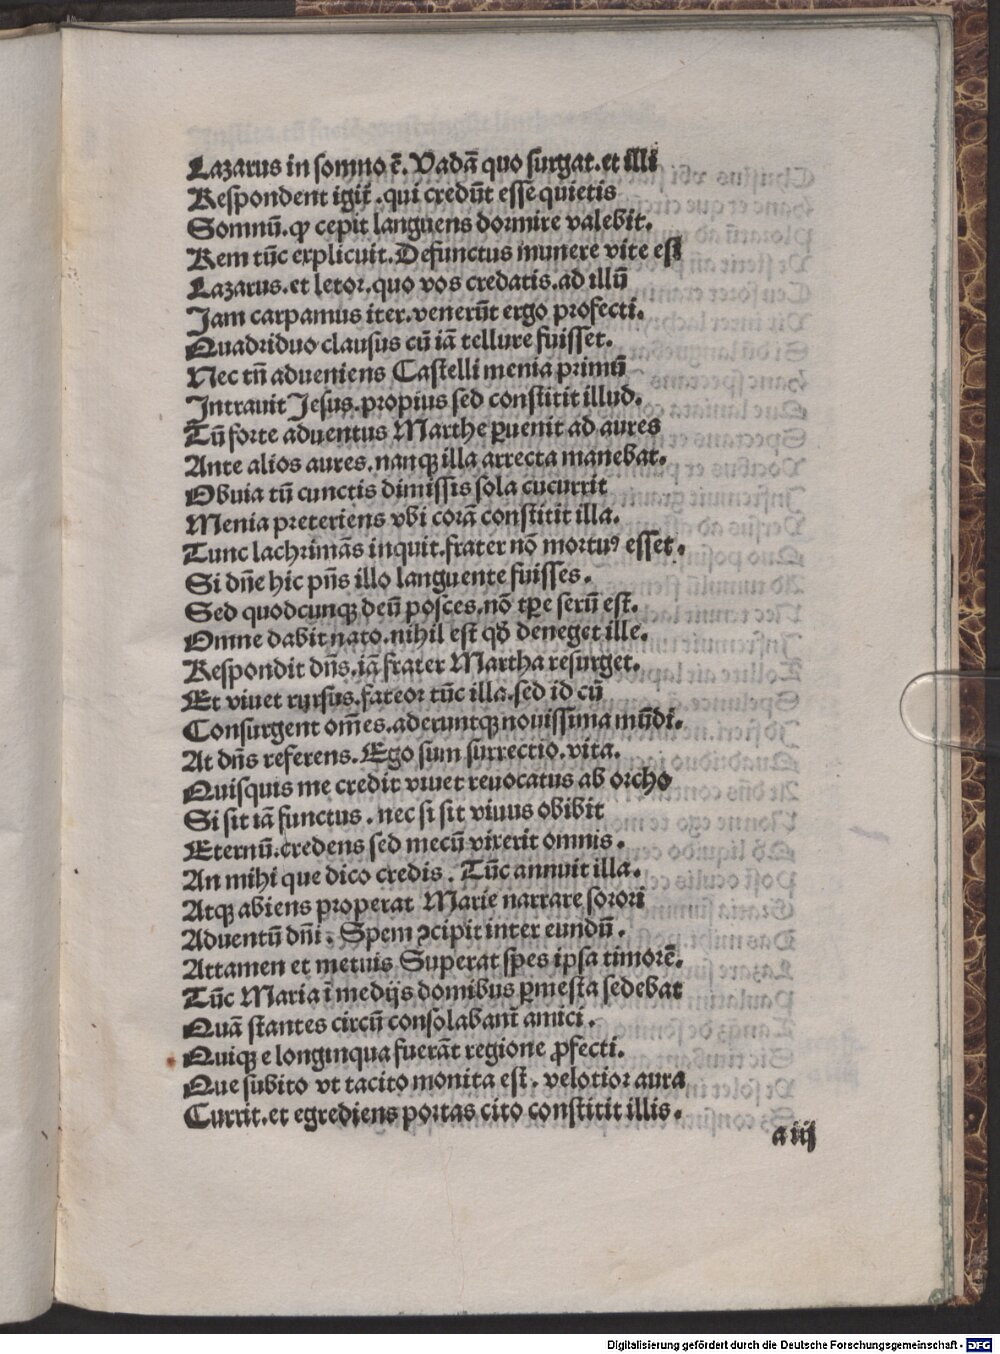 Lazarus in somno ē. Vadā quo surgat. et illi
Respondent igit̄. qui credūt esse quietis
Somnū. qꝫ cepit languens dormire valebit.
Rem tūc explicuit. Defunctus munere vite est
Lazarus. et letor. quo vos credatis. ad illū
Jam carpamus iter. venerūt ergo profecti.
Quadriduo clausus cū iā tellure fuisset.
Nec tn̄ adveniens Castelli menia primū
Intravit Jesus. propius sed constitit illud.
Tū forte adventus Marthe ꝑuenit ad aures
Ante alios aures. nanqꝫ illa arrecta manebat.
Obuia tū cunctis dimissis sola cucurrit
Menia preteriens vbi corā constitit illa.
Tunc lachrimās inquit. frater nō mortuꝰ esset.
Si dn̄e hic pn̄s illo languente fuisses.
Sed quodcunqꝫ deū posces. nō tꝑe serū est.
Omne dabit nato. nihil est qđ deneget ille.
Respondit dn̄s. iā frater Martha resurget.
Et viuet rursus. fateor tūc illa. sed id cū
Consurgent om̄es. aderuntqꝫ nouissima mūdi.
At dn̄s referens. Ego sum surrectio. vita.
Quisquis me credit viuet reuocatus ab orcho
Si sit iā functus. nec si sit viuus obibit
Eternū. credens sed mecū vixerit omnis.
An mihi que dico credis. Tūc annuit illa.
Atqꝫ abiens properat Marie narrare sorori
Adventū dn̄i. Spem ꝯcipit inter eundū.
Attamen et metuis Superat spes ipsa timorē.
Tūc Maria ī medijs domibus ꝑmesta sedebat
Quā stantes circū consolabant̄ amici.
Quiqꝫ e longinqua fuerāt regione ꝓfecti.
Que subito vt tacito monita est. velotior aura
Currit. et egrediens portas cito constitit illis.
a iij
Digitalisierung gefördert durch die Deutsche Forschungsgemeinschaft - DFG